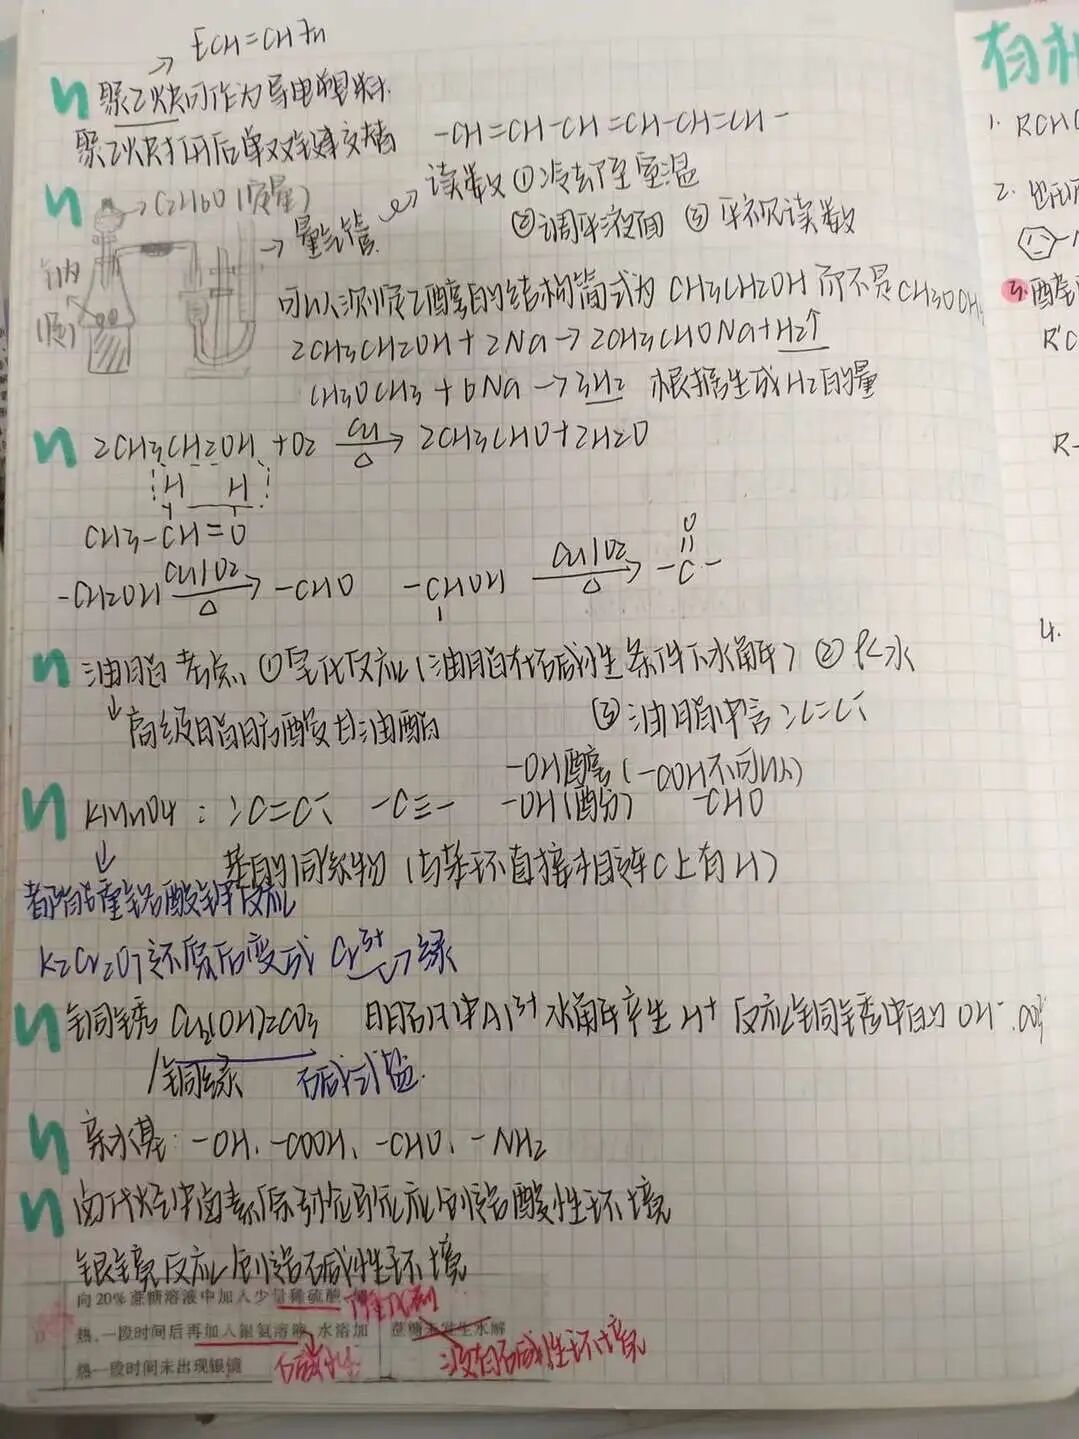 [CH=CH]n
聚乙炔可作为导电塑料.
聚乙炔打开后单双键交替 -CH=CH-CH=CH-CH=CH-
C2H6O(质量)
量气管
读数①冷却至室温
②调平液面 ③平视读数
钠
可以測顺乙醇的结构简式为 CH3CH2OH 而不是CH3OCH3
2CH3CH2OH+2Na→2CH3CHONa+H2↑
CH3OCH3+6Na→3H2 根据生成H2的量
2CH3CH2OH+O2 Cu △ → 2CH3CHO+2H2O
H H
CH3-CH=O
-CH2OH Cu/O2 △ → -CHO -CHOH Cu/O2 △ → -C- O
油脂考点、①皂化反应(油脂在碱性条件下水解)②
↓高级脂肪酸甘油酯 ③油脂中含 >C=C<
-OH醇(-COOH不可以)
KMnO4: >C=C< -C≡- -OH(酚) -CHO
苯的同系物(与苯环直接相连C上有H)
都能与重铬酸钾反应
K2Cr2O7还原后变成 Cr3+→绿
铜锈 Cu2(OH)2CO3 明矾中Al3+水解产生H+ 反应铜锈中的OH-.
铜绿 碱式盐.
亲水基: -OH、-COOH、-CHO、-NH2
银镜反应 创造碱性环境
向20%蔗糖溶液中加入少量稀硫酸 催化剂
热,一段时间后再加入银氨溶液,水浴加 蔗糖未发生水解
热一段时间未出现银镜 碱性 没有碱性环境
有机
1. RCHO
2.
3. 醇
R'C
R-
4.